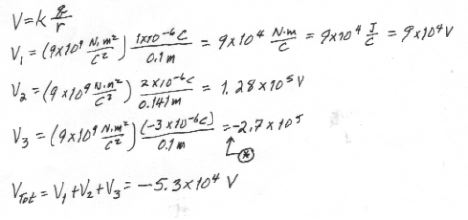 V=k q/r
V₁ = (9x10⁹ N·m²/C²) 1x10⁻⁶C/0.1m = 9x10⁴ N·m/C = 9x10⁴ J/C = 9x10⁴V
V₂ = (9x10⁹ N·m²/C²) 2x10⁻⁶C/0.141m = 1.28x10⁵V
V₃ = (9x10⁹ N·m²/C²) (-3x10⁻⁶C)/0.1m = -2.7x10⁵
*
V_Tot = V₁+V₂+V₃ = -5.3x10⁴ V